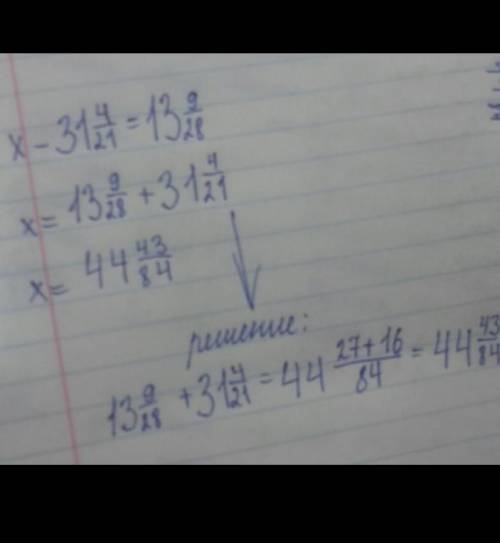 x - 31 4/21 = 13 9/28
x = 13 9/28 + 31 4/21
x = 44 43/84
решение:
13 9/28 + 31 4/21 = 44 27+16/84 = 44 43/84